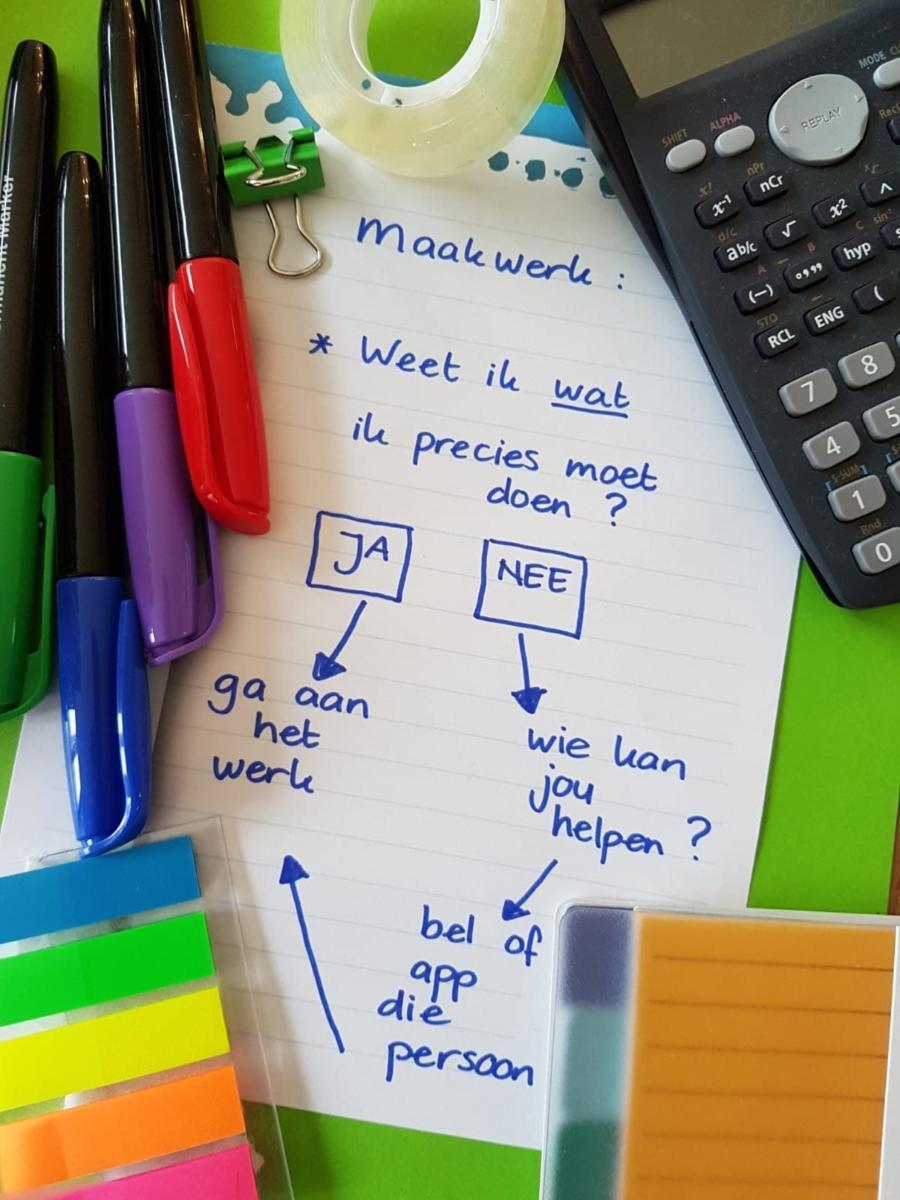 maakwerk :
* Weet ik wat
ik precies moet
doen ?
JA
NEE
ga aan
het
werk
wie kan
jou
helpen ?
bel of
app
die
persoon
Permanent Marker
SHIFT
ALPHA
REPLAY
MODE
x!
nPr
x⁻¹
nCr
d/c
ab/c
√
x²
^
A
B
C
sin⁻¹
(—)
°,,,
hyp
STO
RCL
ENG
(
7
8
4
5
S-SUM
1
Rnd
0